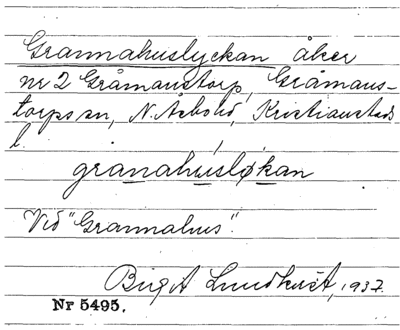 Grannahuslyckan åker
nr 2 Gråmanstorp, Gråmans-
torps sn, N. Åsbohd, Kristianstads
l.
granahusløkan
Vid "Grannahus".
Birgit Lundkvist, 1937.
Nr 5495.